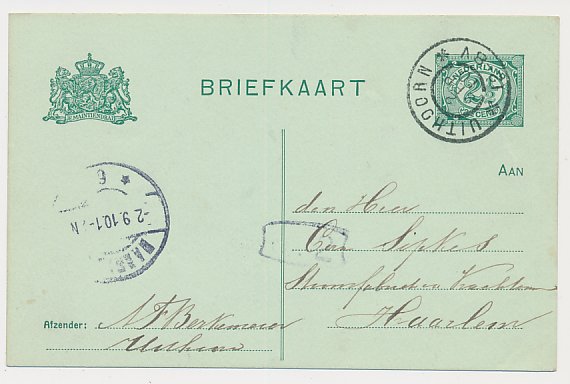 BRIEFKAART
JE MAINTIENDRAI
NEDERLAND
2½
CENT
UITHOORN * ABC
AAN
den Heer
Sipkes
Haarlem
6
-2.9.10.1-7N
HAAR
Afzender: A F Berkemeier
Uithoorn